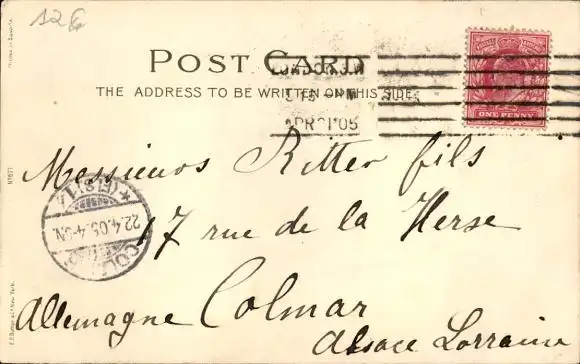 126
Printed in Bavaria
POST CARD
THE ADDRESS TO BE WRITTEN ON THIS SIDE.
LONDON, S.W
5 15 PM
APR 21 05
ONE PENNY
Messieurs Ritter fils
17 rue de la Herse
Allemagne Colmar
Alsace Lorraine
22.4.05.4-5N.
COLMAR
(ELS.)
E.P. Dutton & Co New York.